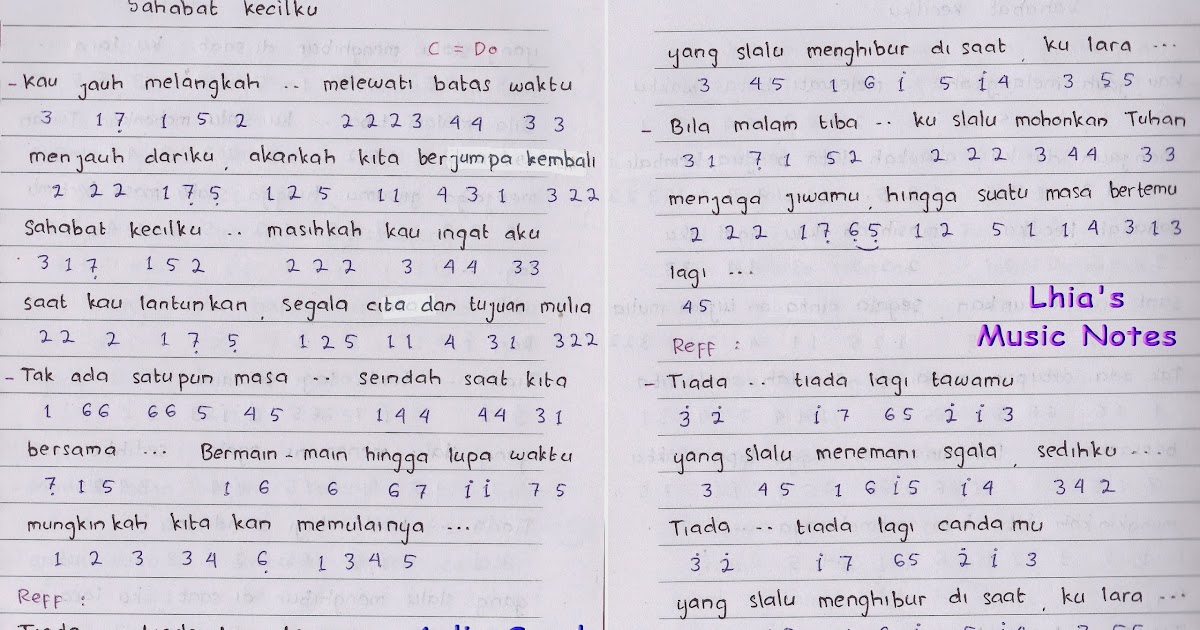 Sahabat kecilku
C = Do
- Kau jauh melangkah .. melewati batas waktu
3 1 7̣ 1 5 2 2 2 2 3 4 4 3 3
menjauh dariku, akankah kita berjumpa kembali
2 2 2 1 7̣ 5̣ 1 2 5 1 1 4 3 1 3 2 2
Sahabat kecilku .. masihkah kau ingat aku
3 1 7̣ 1 5 2 2 2 2 3 4 4 3 3
saat kau lantunkan, segala cita dan tujuan mulia
2 2 2 1 7̣ 5̣ 1 2 5 1 1 4 3 1 3 2 2
- Tak ada satupun masa ... seindah saat kita
1 6 6 6 6 5 4 5 1 4 4 4 4 3 1
bersama ... Bermain - main hingga lupa waktu
7̣ 1 5 1 6 6 6 7 i̇ i̇ 7 5
mungkinkah kita kan memulainya ...
1 2 3 3 4 6̣ 1 3 4 5
Reff :
yang slalu menghibur di saat, ku lara ...
3 4 5 1 6 i̇ 5 i̇ 4 3 5 5
- Bila malam tiba .. ku slalu mohonkan Tuhan
3 1 7̣ 1 5 2 2 2 2 3 4 4 3 3
menjaga jiwamu hingga suatu masa bertemu
2 2 2 1 7̣ 6̣ 5̣ 1 2 5 1 1 4 3 1 3
lagi ...
4 5
Lhia's
Music Notes
Reff :
- Tiada .. tiada lagi tawamu
3̇ 2̇ i̇ 7 6 5 2̇ i̇ 3
yang slalu menemani sgala, sedihku ....
3 4 5 1 6 i̇ 5 i̇ 4 3 4 2
Tiada .. tiada lagi candamu
3̇ 2̇ i̇ 7 6 5 2̇ i̇ 3
yang slalu menghibur di saat, ku lara ...